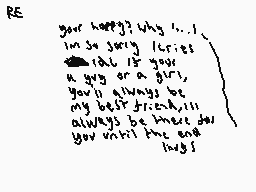 RE
your happy? why !...!
im so sorry !cries
idc if your
a guy or a girl,
you'll always be
my best friend, ill
always be there for
you until the end
hugs